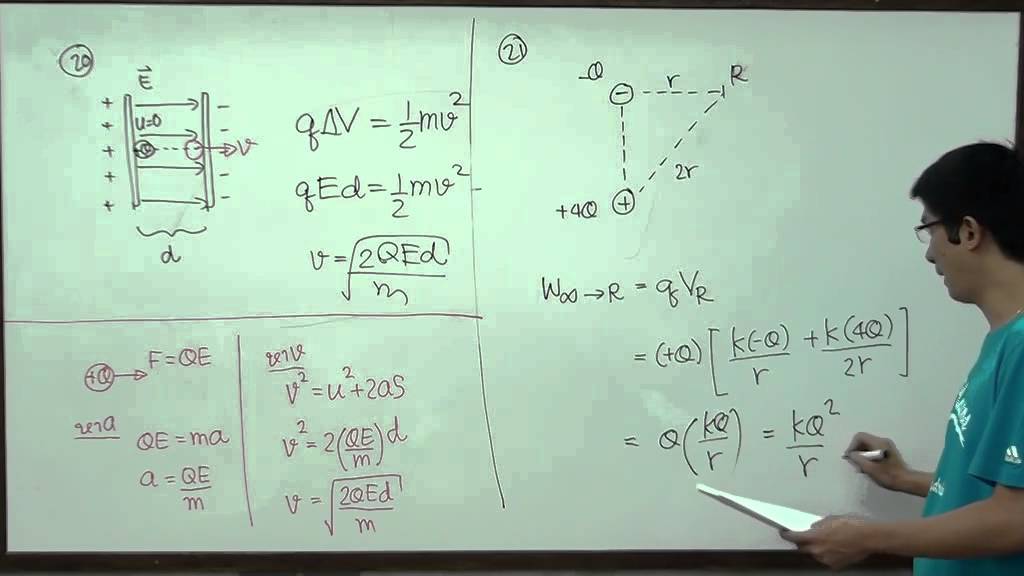 20
E⃗
+ −
+ u=0 −
+ Q v
+ −
+ −
d
qΔV = ½mv²
qEd = ½mv²
v = √(2QEd/m)
+Q F = QE
หา a
QE = ma
a = QE/m
หา v
v² = u² + 2aS
v² = 2(QE/m)d
v = √(2QEd/m)
21
-Q − r R
2r
+4Q +
W∞→R = qV_R
= (+Q)[k(-Q)/r + k(4Q)/2r]
= Q(kQ/r) = kQ²/r